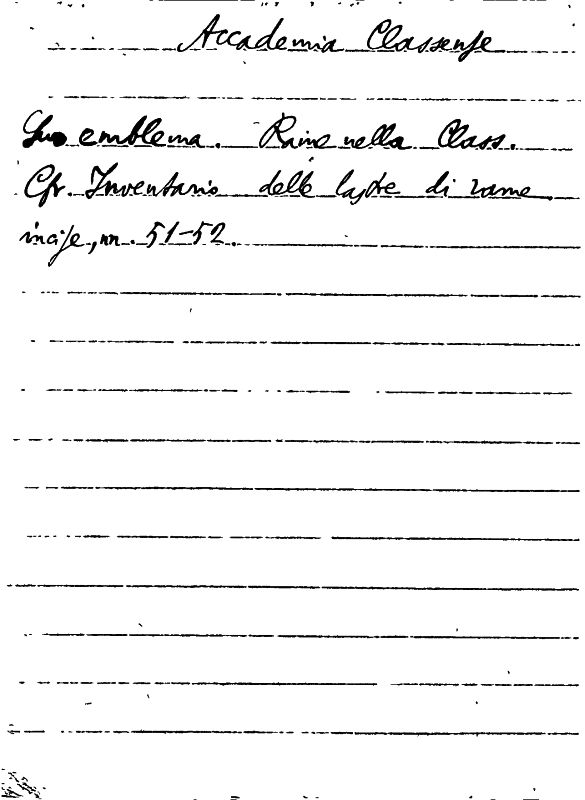 Accademia Classense
Suo emblema. Rame nella Class.
Cfr. Inventario delle lastre di rame
incise, nn. 51-52.